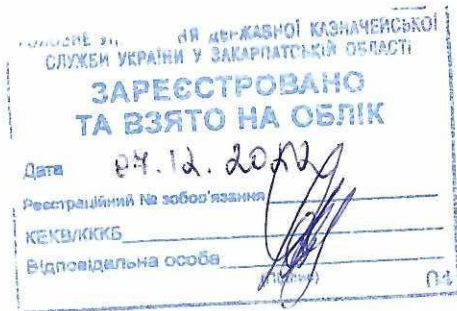 ГОЛОВНЕ УПРАВЛІННЯ ДЕРЖАВНОЇ КАЗНАЧЕЙСЬКОЇ
СЛУЖБИ УКРАЇНИ У ЗАКАРПАТСЬКІЙ ОБЛАСТІ
ЗАРЕЄСТРОВАНО
ТА ВЗЯТО НА ОБЛІК
Дата 07.12.2022
Реєстраційний № зобов'язання
КЕКВ/КККБ
Відповідальна особа
(підпис)
04